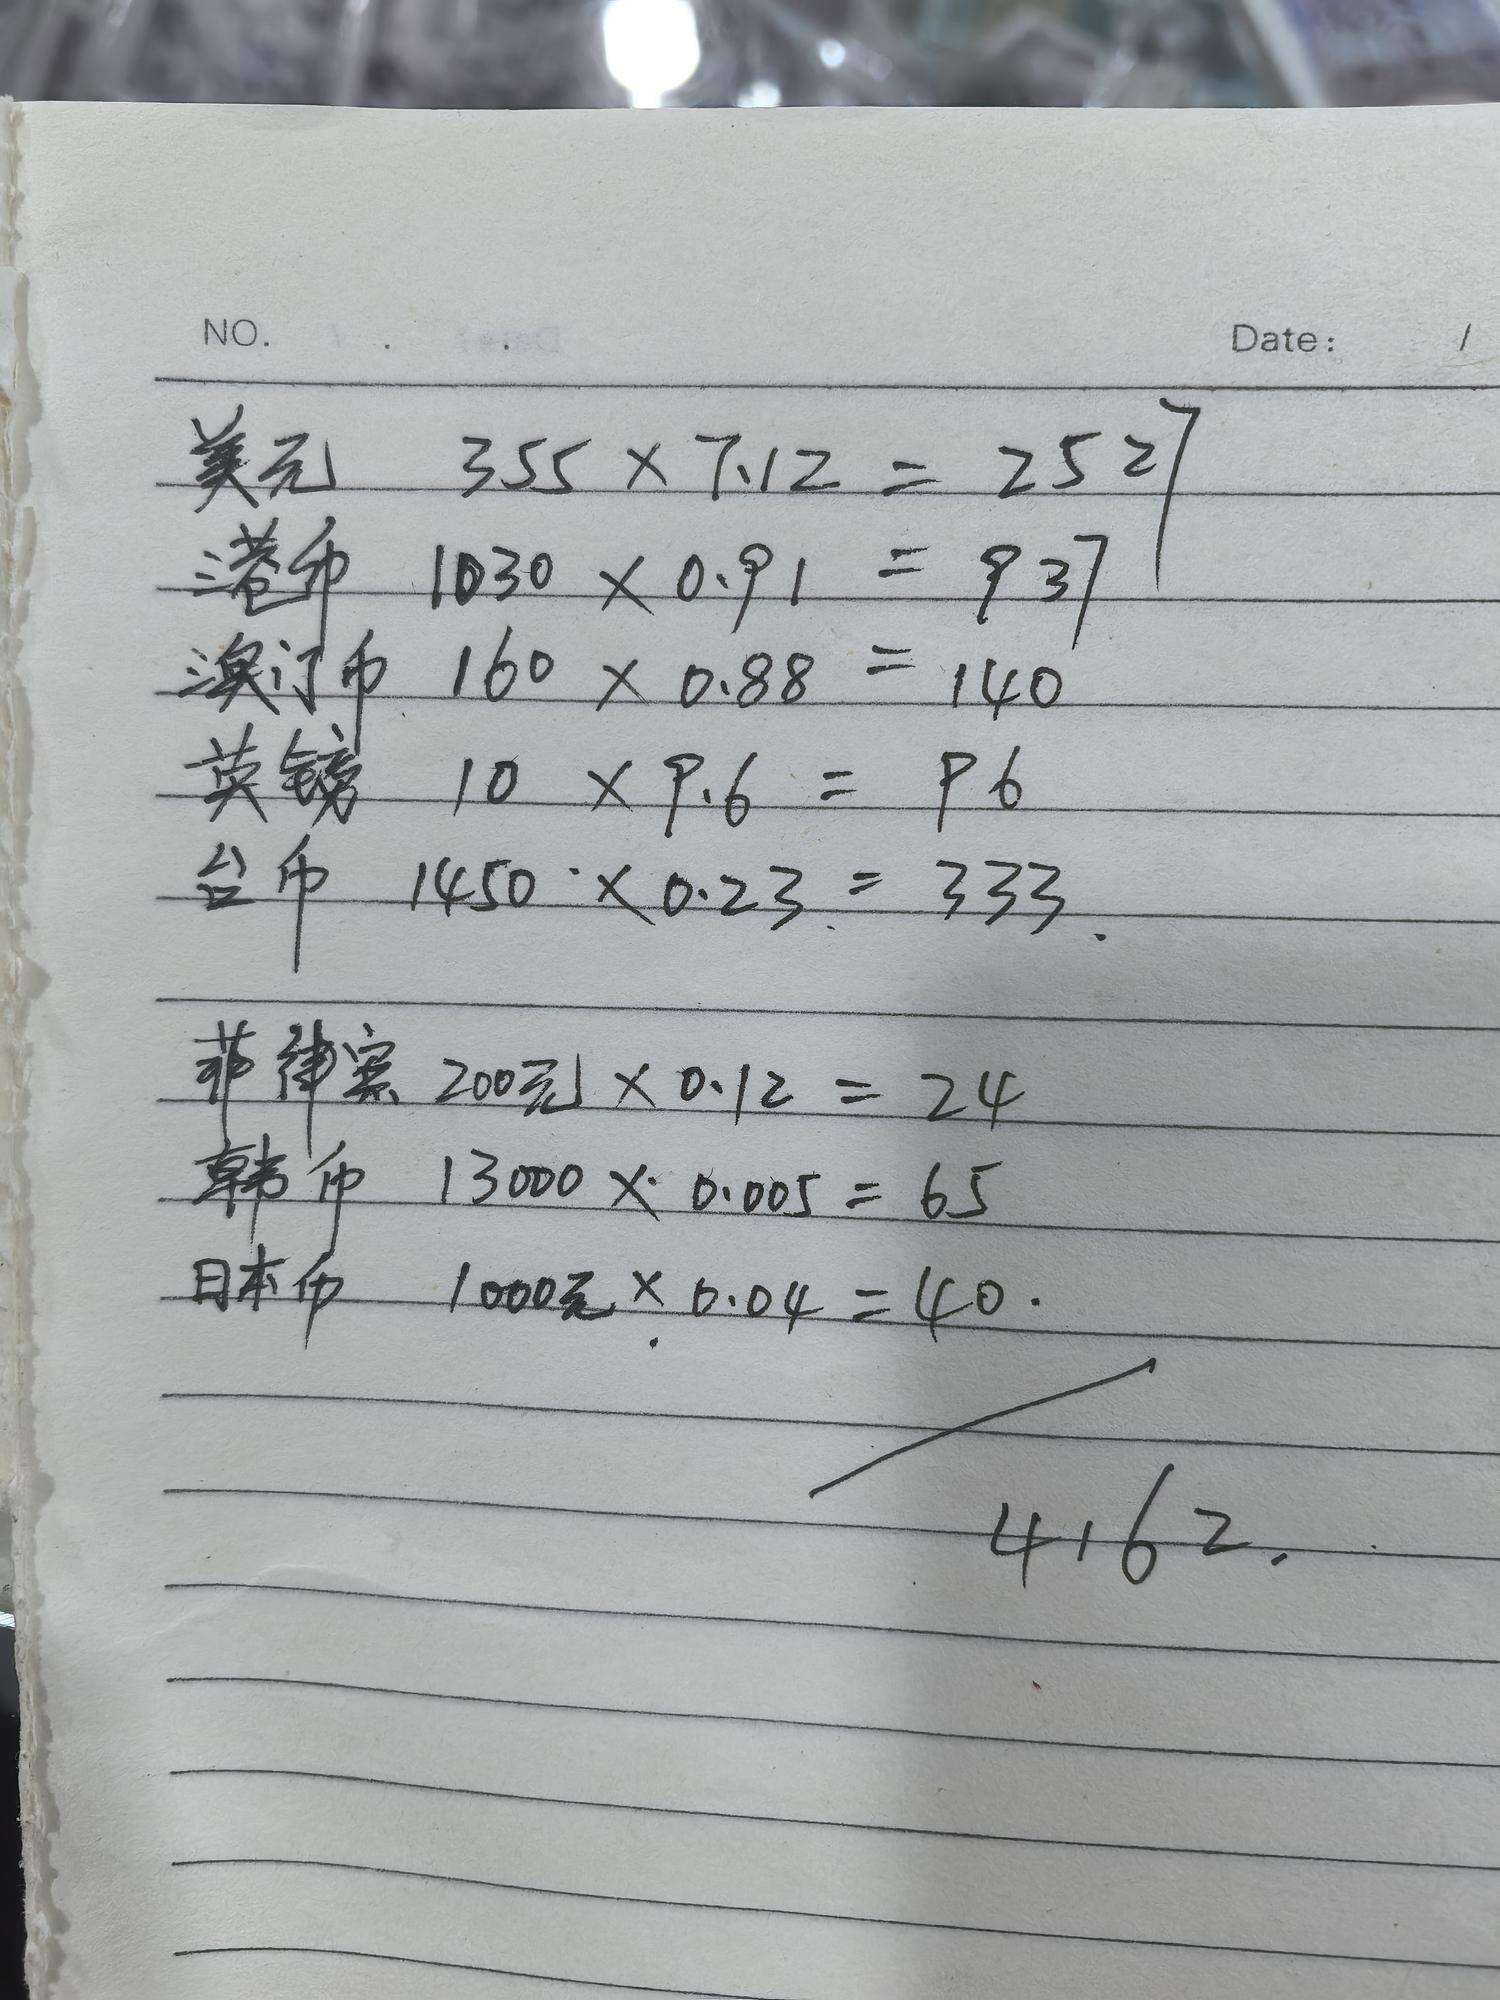 NO.
Date: /
美元 355 × 7.12 = 2527
港币 1030 × 0.91 = 937
澳门币 160 × 0.88 = 140
英镑 10 × 9.6 = 96
台币 1450 × 0.23 = 333.
菲律宾 200元 × 0.12 = 24
韩币 13000 × 0.005 = 65
日本币 1000元 × 0.04 = 40.
4162.